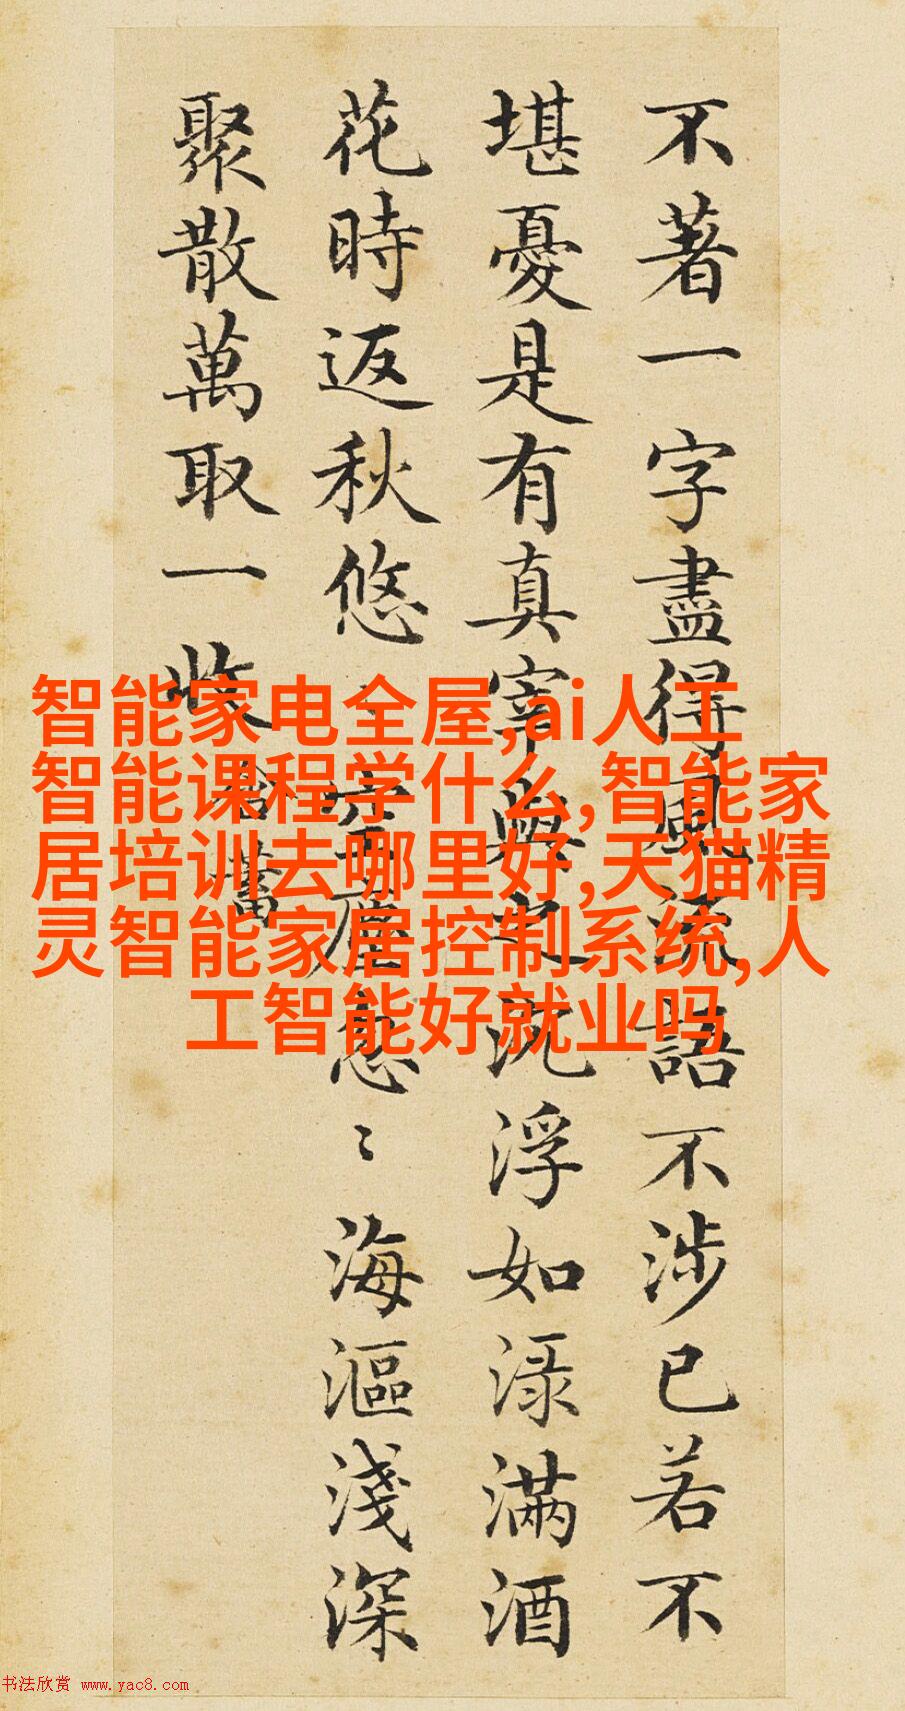 不著一字盡得風流語不涉已若不
堪憂是有真宰與之沉浮如渌滿酒
花時返秋悠〻空塵忽〻海漚淺深
聚散萬取一收
智能家电全屋,ai人工
智能课程学什么,智能家
居培训去哪里好,天猫精
灵智能家居控制系统,人
工智能好就业吗
书法欣赏 www.yac8.com